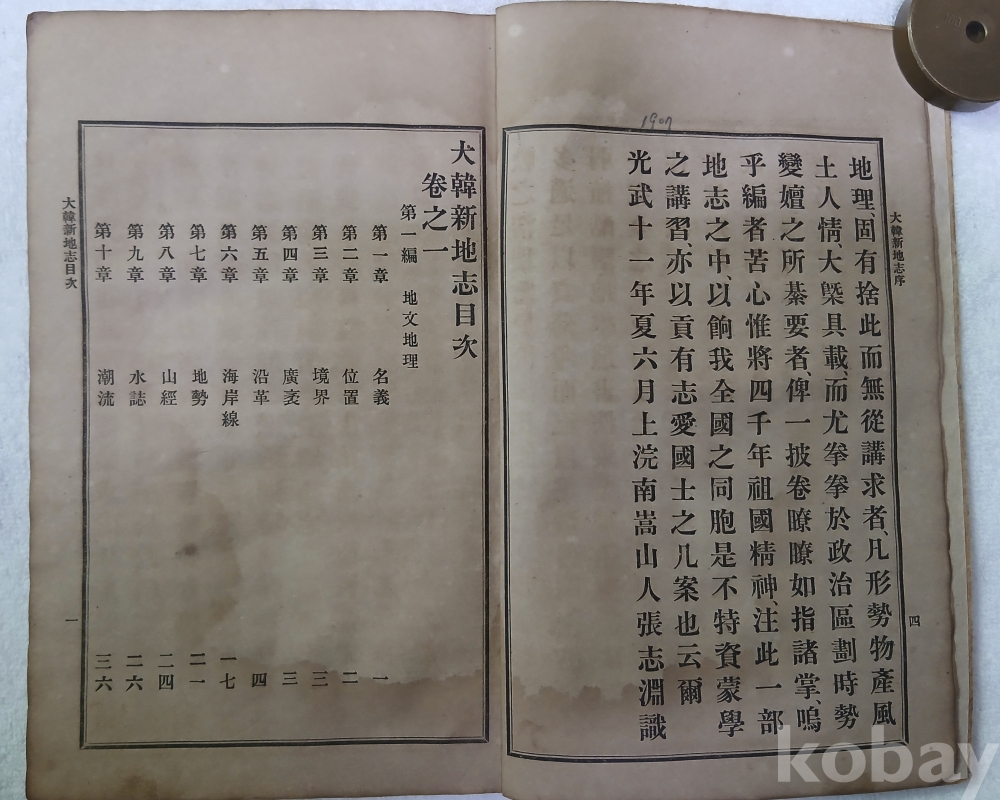 1907
大韓新地志序
四
地理、固有捨此而無從講求者、凡形勢物產風
土人情、大槩具載、而尤拳拳於政治區劃時勢
變嬗之所綦要者、俾一披卷瞭瞭如指諸掌、嗚
乎編者苦心惟將四千年祖國精神、注此一部
地志之中、以餉我全國之同胞是不特資蒙學
之講習、亦以貢有志愛國士之几案也云爾
光武十一年夏六月上浣南嵩山人張志淵識
大韓新地志目次
卷之一
第一編 地文地理
第一章 名義 一
第二章 位置 二
第三章 境界 三
第四章 廣袤 三
第五章 沿革 四
第六章 海岸線 一七
第七章 地勢 二一
第八章 山經 二四
第九章 水誌 二六
第十章 潮流 三六
大韓新地志目次
一
kobay